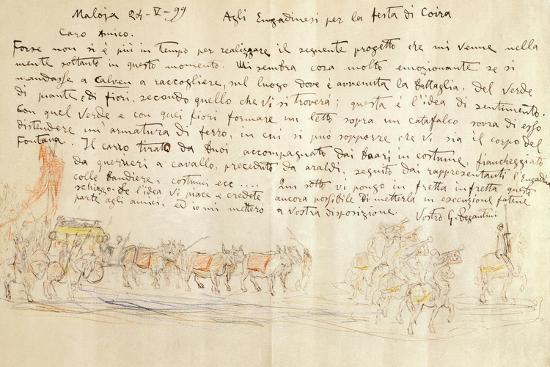 Maloja 24-V-99 Agli Engadinesi per la festa di Coira
Caro Amico.
Forse non si è più in tempo per realizzare il seguente progetto che mi venne nella
mente soltanto in questo momento. Mi sembra cosa molto emozionante se si
mandasse a Calven a raccogliere, sul luogo dove è avvenuta la Battaglia, del Verde
di piante, e di fiori, secondo quello che vi si troverà; questa è l'idea di sentimento.
Con quel Verde e con quei fiori formare un letto sopra un catafalco sovra di esso
distendere un'armatura di ferro, in cui si può supporre che vi sia il corpo del
Fontana. Il carro tirato da Buoi accompagnato dai Boari in costume, fiancheggiato
da guerrieri a cavallo, preceduto da araldi, seguito dai rappresentanti l'Engadina
colle Bandiere, costumi ecc .... Qui sotto vi pongo in fretta infretta questo
schizzo; se l'idea vi piace e credete ancora possibile di metterla in esecuzione fatene
parte agli amici, ed io mi metterò a vostra disposizione.
Vostro G. Segantini